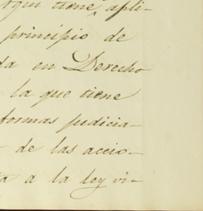 tiene apli-
principio de
en Derecho
la que tiene
formas judicia-
de las accio-
a la ley vi-